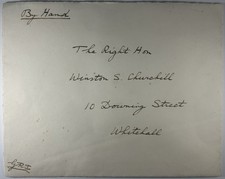 By Hand
The Right Hon
Winston S. Churchill
10 Downing Street
Whitehall